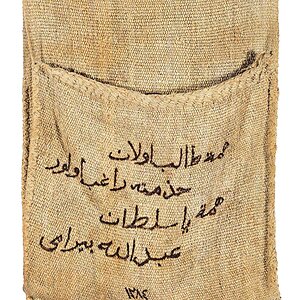 همته طالب اولان
خدمته راغب اولور
همة يا سلطان
عبد الله بيرامى
١٢٨٤